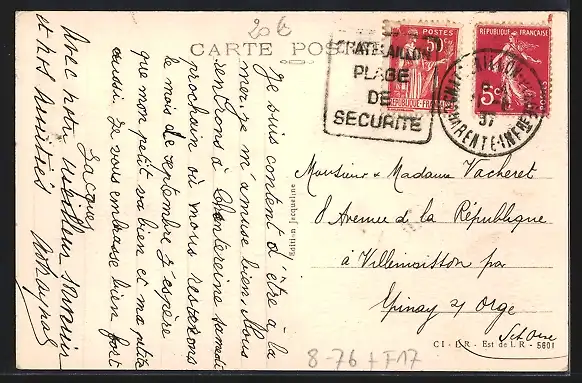 20€
CARTE POSTALE
CHATELAILLON
PLAGE
DE
SECURITE
POSTES
50c
REPUBLIQUE FRANÇAISE
REPUBLIQUE FRANÇAISE
5c
POSTES
CHATELAILLON
37
CHARENTE-INFRE
Je suis content d'être à la
mer, je m'amuse bien. Nous
rentrons à Chantereine samedi
prochain où nous resterons
le mois de septembre j'espère
que mon petit va bien et ma petite
aussi. Je vous embrasse bien fort
Jacques
Avec notre meilleur souvenir
et nos amitiés
Edition Jacqueline
Monsieur & Madame Vacheret
8 Avenue d la République
à Villemoisson par
Epinay s/ Orge
Set Oise
CI - L R - Est de L R - 5601
8-76 + F17